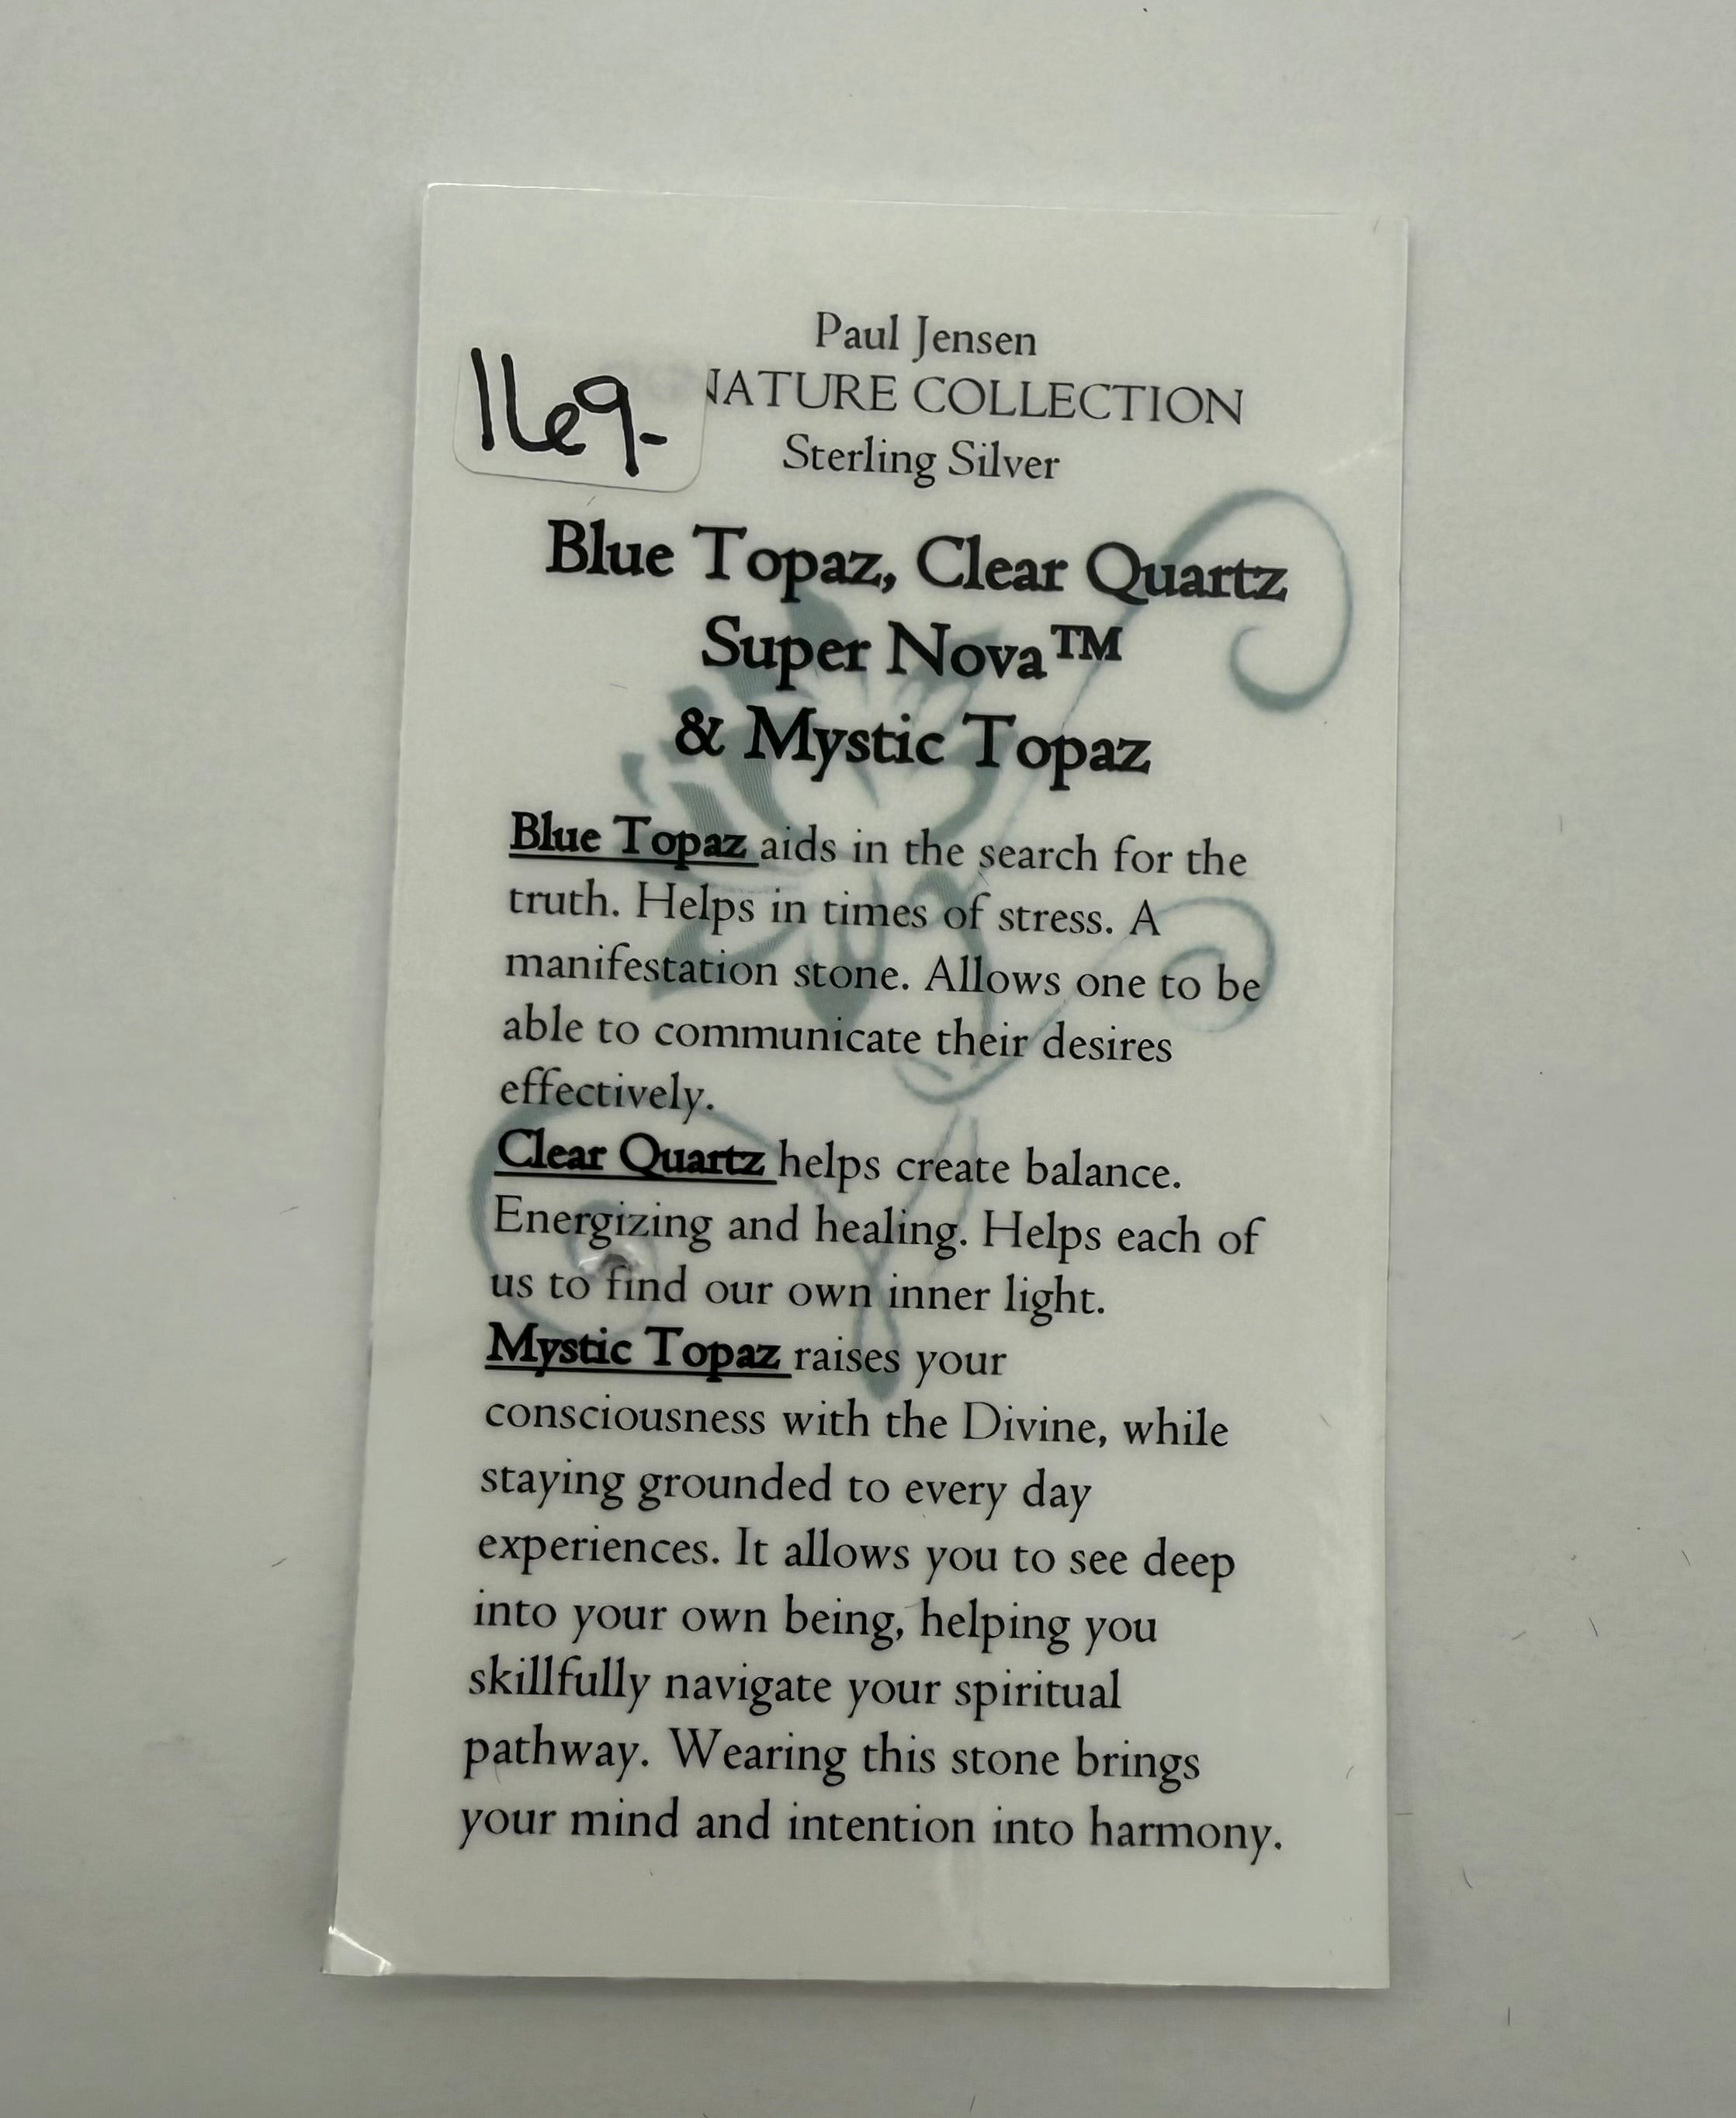 Paul Jensen
169-
NATURE COLLECTION
Sterling Silver
Blue Topaz, Clear Quartz
Super Nova™
& Mystic Topaz
Blue Topaz aids in the search for the
truth. Helps in times of stress. A
manifestation stone. Allows one to be
able to communicate their desires
effectively.
Clear Quartz helps create balance.
Energizing and healing. Helps each of
us to find our own inner light.
Mystic Topaz raises your
consciousness with the Divine, while
staying grounded to every day
experiences. It allows you to see deep
into your own being, helping you
skillfully navigate your spiritual
pathway. Wearing this stone brings
your mind and intention into harmony.